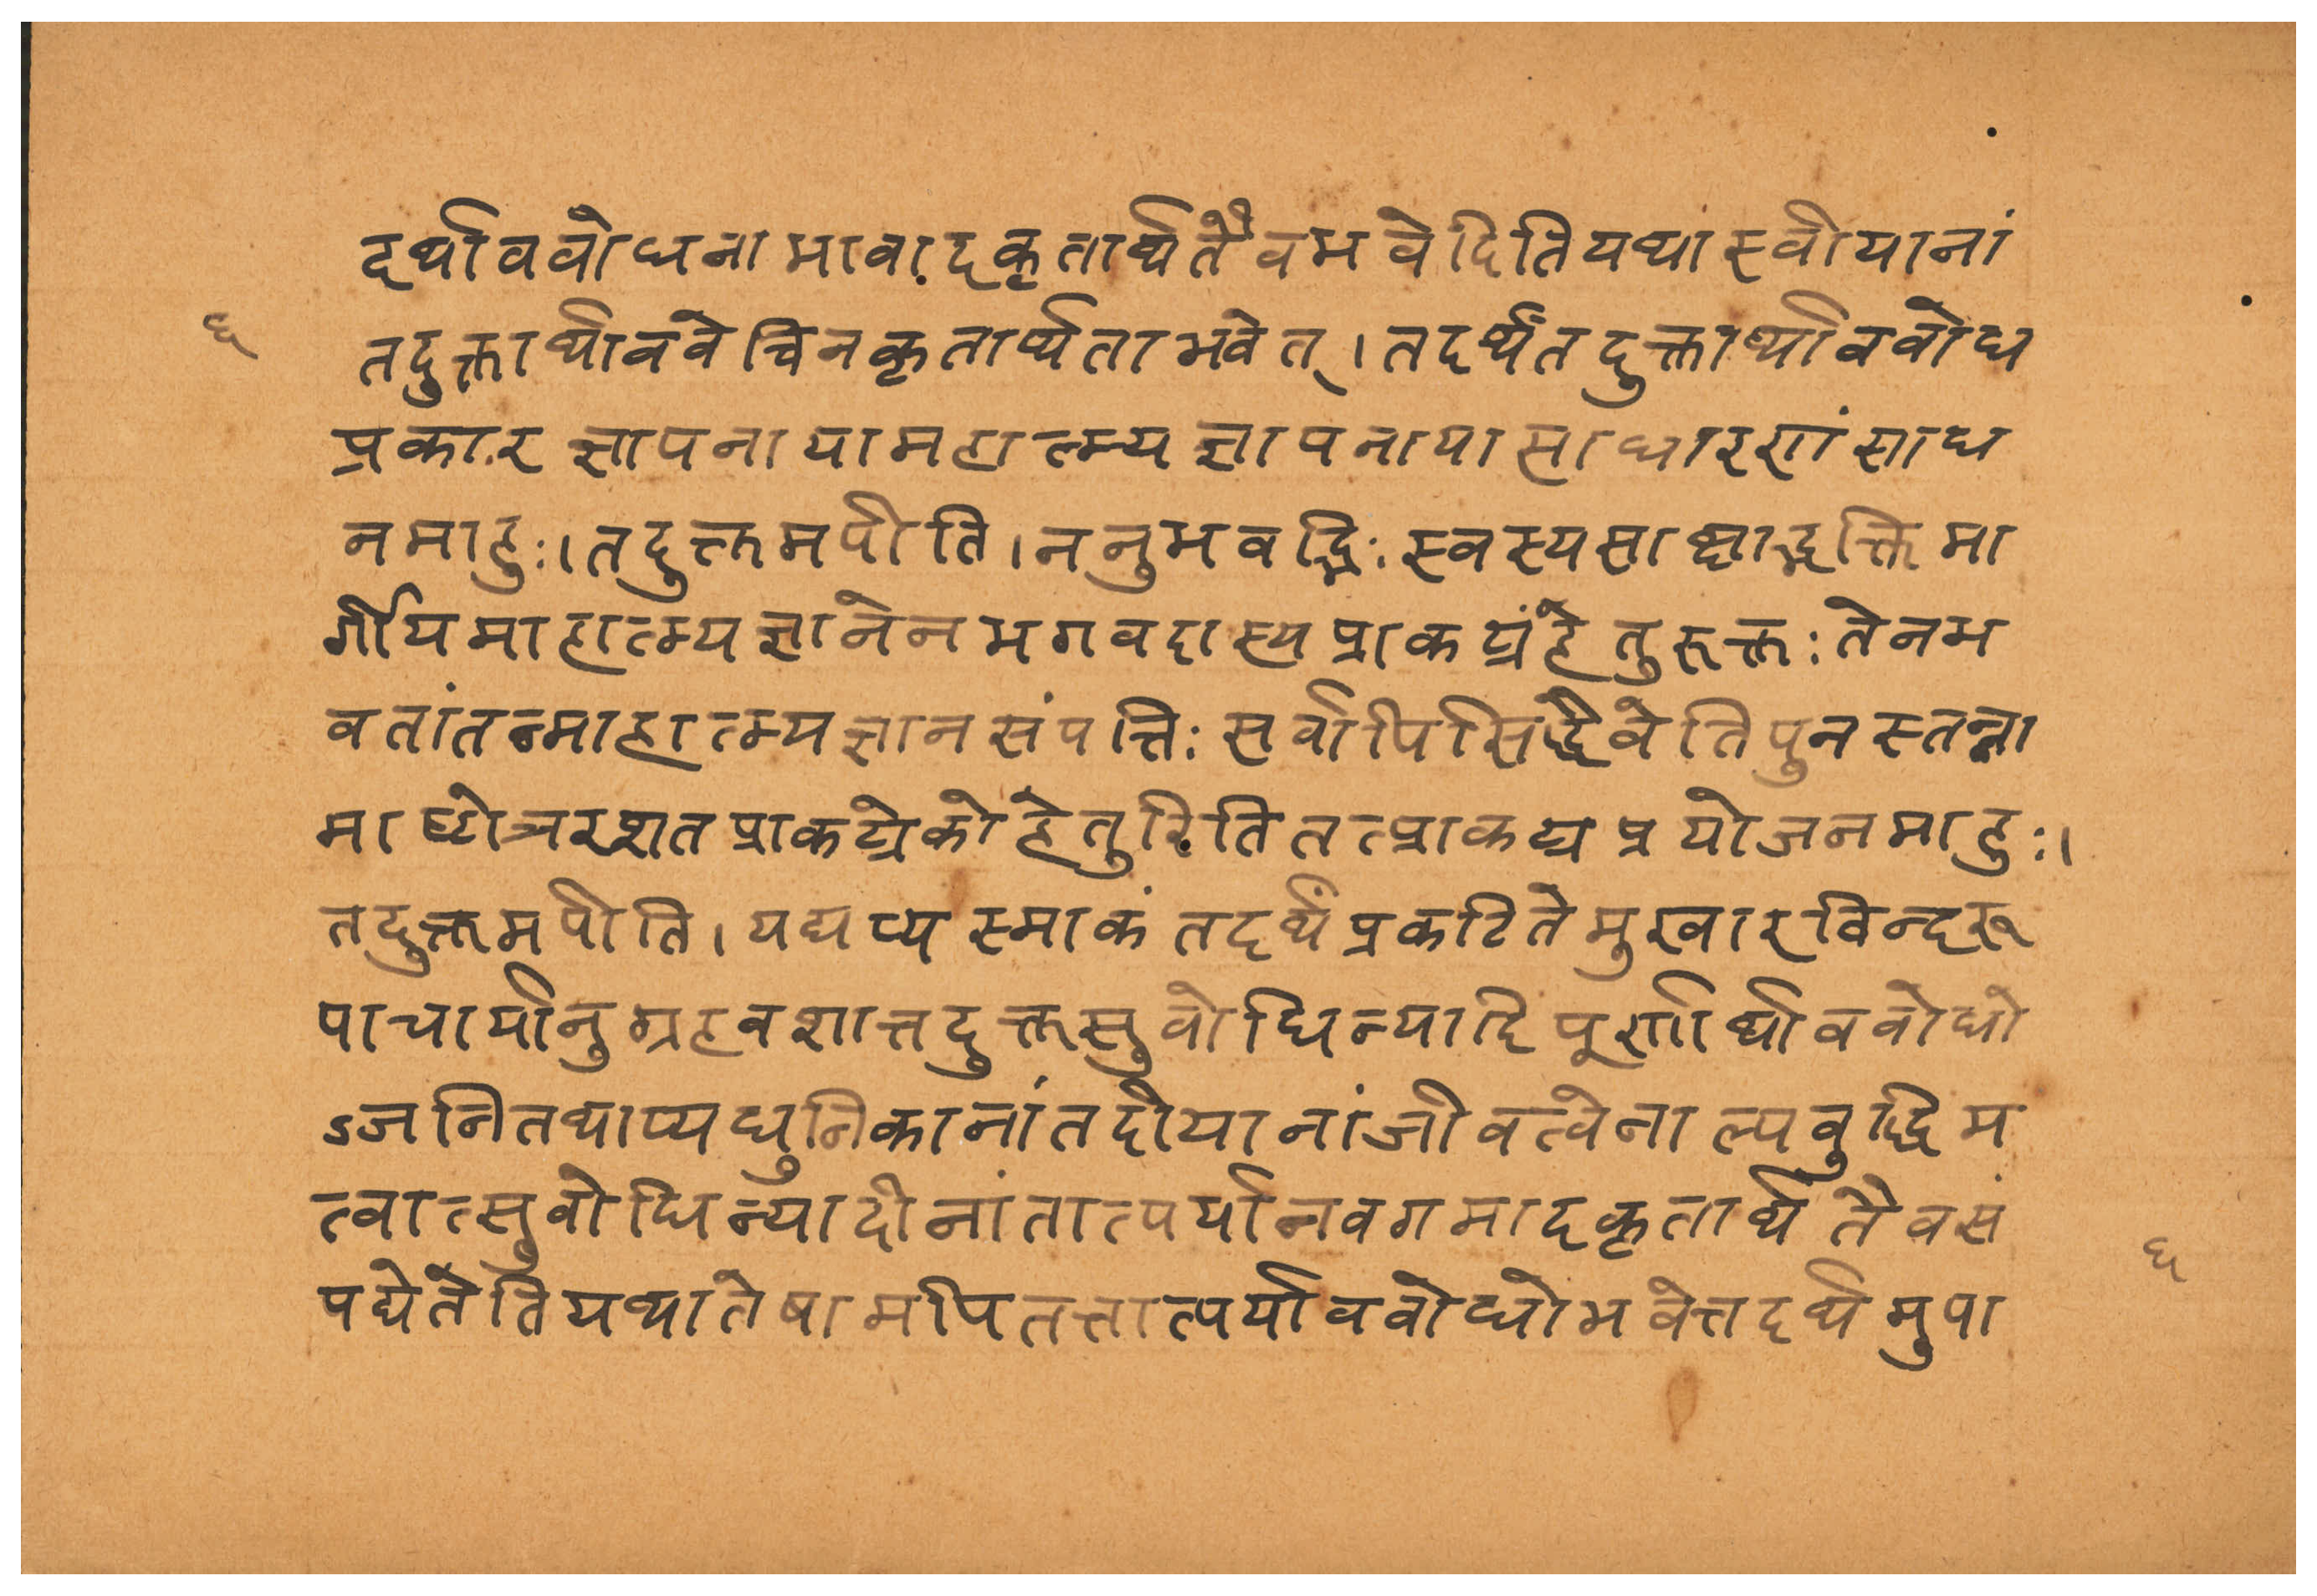 दर्थाववोधनाभावादकृतार्थतैवभवेदितियथास्वीयानां
६
तदुक्तार्थाववेधेनकृतार्थ्यताभवेत्।तदर्थंतदुक्तार्थाववोध
प्रकारज्ञापनायामहात्म्यज्ञापनायासाधारणंसाध
नमाहुः।तदुक्तमपीति।ननुभवद्भिःस्वस्यसाक्षाद्भक्तिमा
र्गीयमाहात्म्यज्ञानेनभगवदास्यप्राकट्यंहेतुरुक्तःतेनभ
वतांतन्माहात्म्यज्ञानसंपत्तिःसर्वापिसिद्धैवेतिपुनस्तन्ना
माष्टोत्तरशतप्राकट्येकोहेतुरितितत्प्राकट्यप्रयोजनमाहुः।
तदुक्तमपीति।यद्यप्यस्माकंतदर्थंप्रकटितेमुखारविन्दरू
पाचार्यानुग्रहवशात्तदुक्तसुवोधिन्यादिपूर्णार्थाववोधो
ऽजनितथाप्यधुनिकानांतदीयानांजीवत्वेनाल्पवुद्धिम
त्वात्सुवोधिन्यादीनांतात्पर्यानवगमादकृतार्थतैवसं
पद्येतेतियथातेषामपितत्तात्पर्याववोधोभवेत्तदर्थमुपा
६